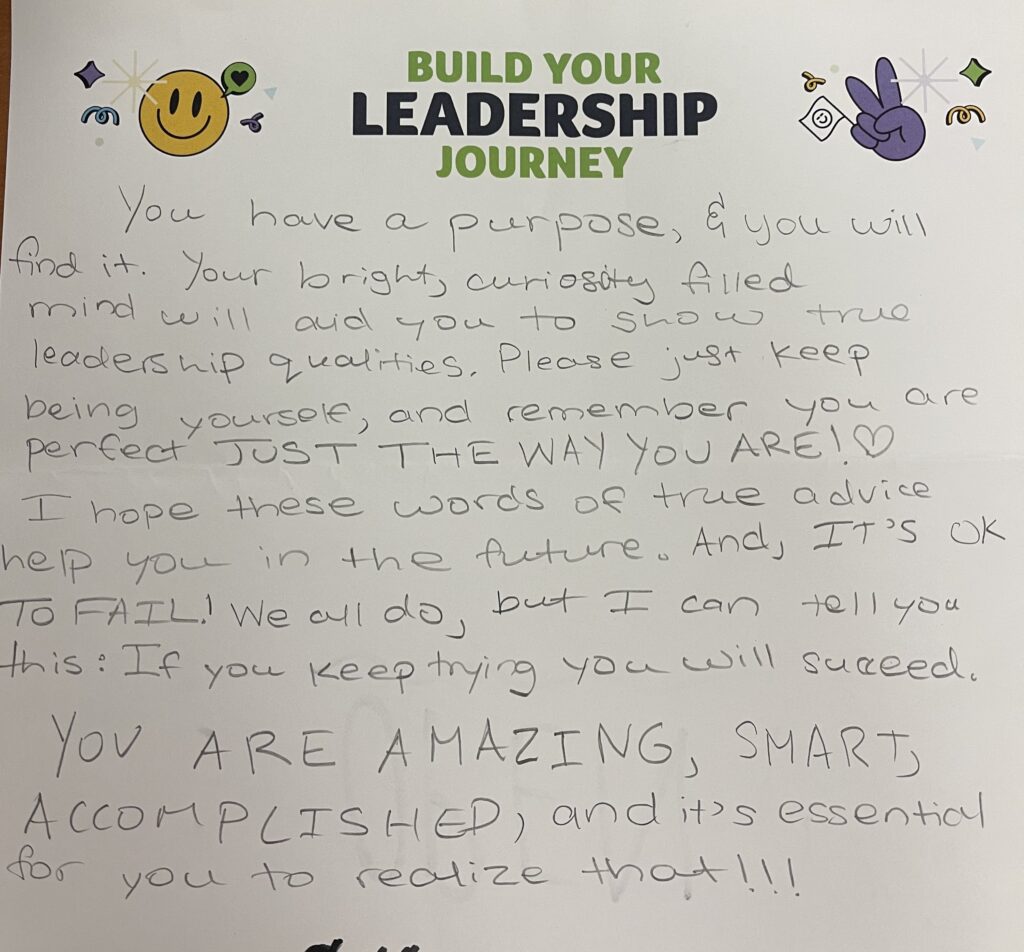 BUILD YOUR
LEADERSHIP
JOURNEY
You have a purpose, & you will
find it. Your bright, curiosity filled
mind will aid you to show true
leadership qualities. Please just keep
being yourself, and remember you are
perfect JUST THE WAY YOU ARE! ♡
I hope these words of true advice
help you in the future. And, IT'S OK
TO FAIL! We all do, but I can tell you
this: If you keep trying you will succeed.
YOU ARE AMAZING, SMART,
ACCOMPLISHED, and it's essential
for you to realize that!!!